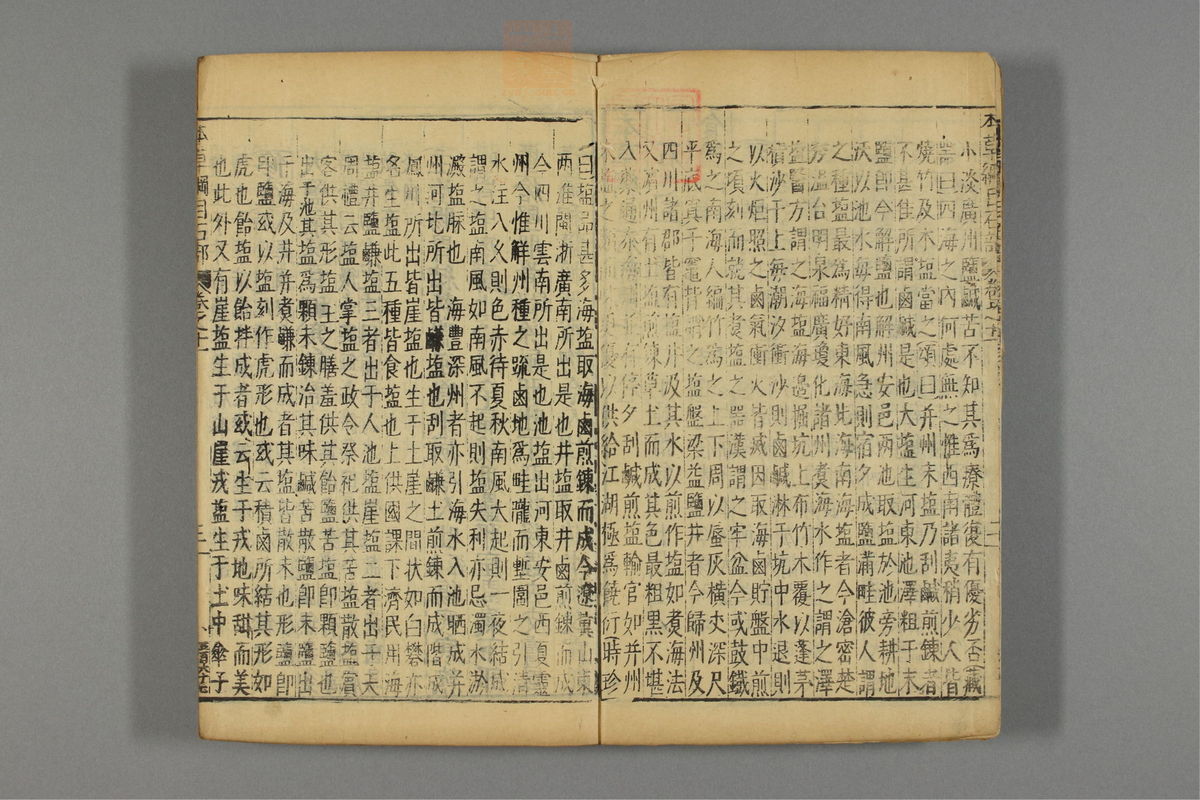 小淡廣州鹽鹹苦不知其爲療體復有優劣否藏
器曰四海之內何處無之惟西南諸夷稍少人皆
燒竹及木塩當之頌曰并州末塩乃刮鹹煎鍊者
不甚佳所謂鹵鹹是也大塩生河東池澤粗于末
鹽即今解鹽也解州安邑兩池取塩於池旁耕地
沃以池水每得南風急則宿夕成鹽滿畦彼人謂
之種塩最爲精好東海北海南海塩者今滄密楚
秀溫台明泉福廣瓊化諸州煮海水作之謂之澤
塩醫方謂之海塩海邊掘坑上布竹木覆以蓬茅
積沙于上每潮汐衝沙則鹵鹹淋于坑中水退則
以火烟照之鹵氣衝火皆滅因取海鹵貯盤中煎
之頃刻而就其煮塩之器漢謂之牢盆今或鼓鐵
爲之南海人編竹爲之上下周以蜃灰橫丈深尺
平底寘于竈背謂之塩盤梁益鹽井者今歸州及
四川諸郡皆有塩井汲其水以煎作塩如煮海法
又濱州有土塩煎鍊草土而成其色最粗黑不堪
入藥通泰海州並有停戶刮鹹煎塩輸官如并州
末塩之類以供給江湖極爲饒衍時珍
曰塩品甚多海塩取海鹵煎鍊而成今遼冀山東
兩淮閩浙廣南所出是也井塩取井鹵煎鍊而成
今四川雲南所出是也池塩出河東安邑西夏靈
州今惟解州種之疏鹵地爲畦隴而塹圍之引清
水注入久則色赤待夏秋南風大起則一夜結成
謂之塩南風如南風不起則塩失利亦忌濁水淤
澱塩脉也海豐深州者亦引海水入池晒成并
州河北所出皆鹻塩也刮取鹻土煎鍊而成階成
鳳州所出皆崖塩也生于土崖之間狀如白礬亦
名生塩此五種皆食塩也上供國課下濟民用海
塩井鹽鹻塩三者出于人池塩崖塩二者出于天
周禮云塩人掌塩之政令祭祀供其苦塩散塩賓
客供其形塩王之膳羞供其飴鹽苦塩即顆鹽也
出于池其塩爲顆未鍊治其味鹹苦散鹽即末鹽出
于海及井并煮鹻而成者其塩皆散末也形鹽即
印鹽或以塩刻作虎形也或云積鹵所結其形如
虎也飴塩以飴拌成者或云生于戎地味甜而美
也此外又有崖塩生于山崖戎塩生于土中傘子